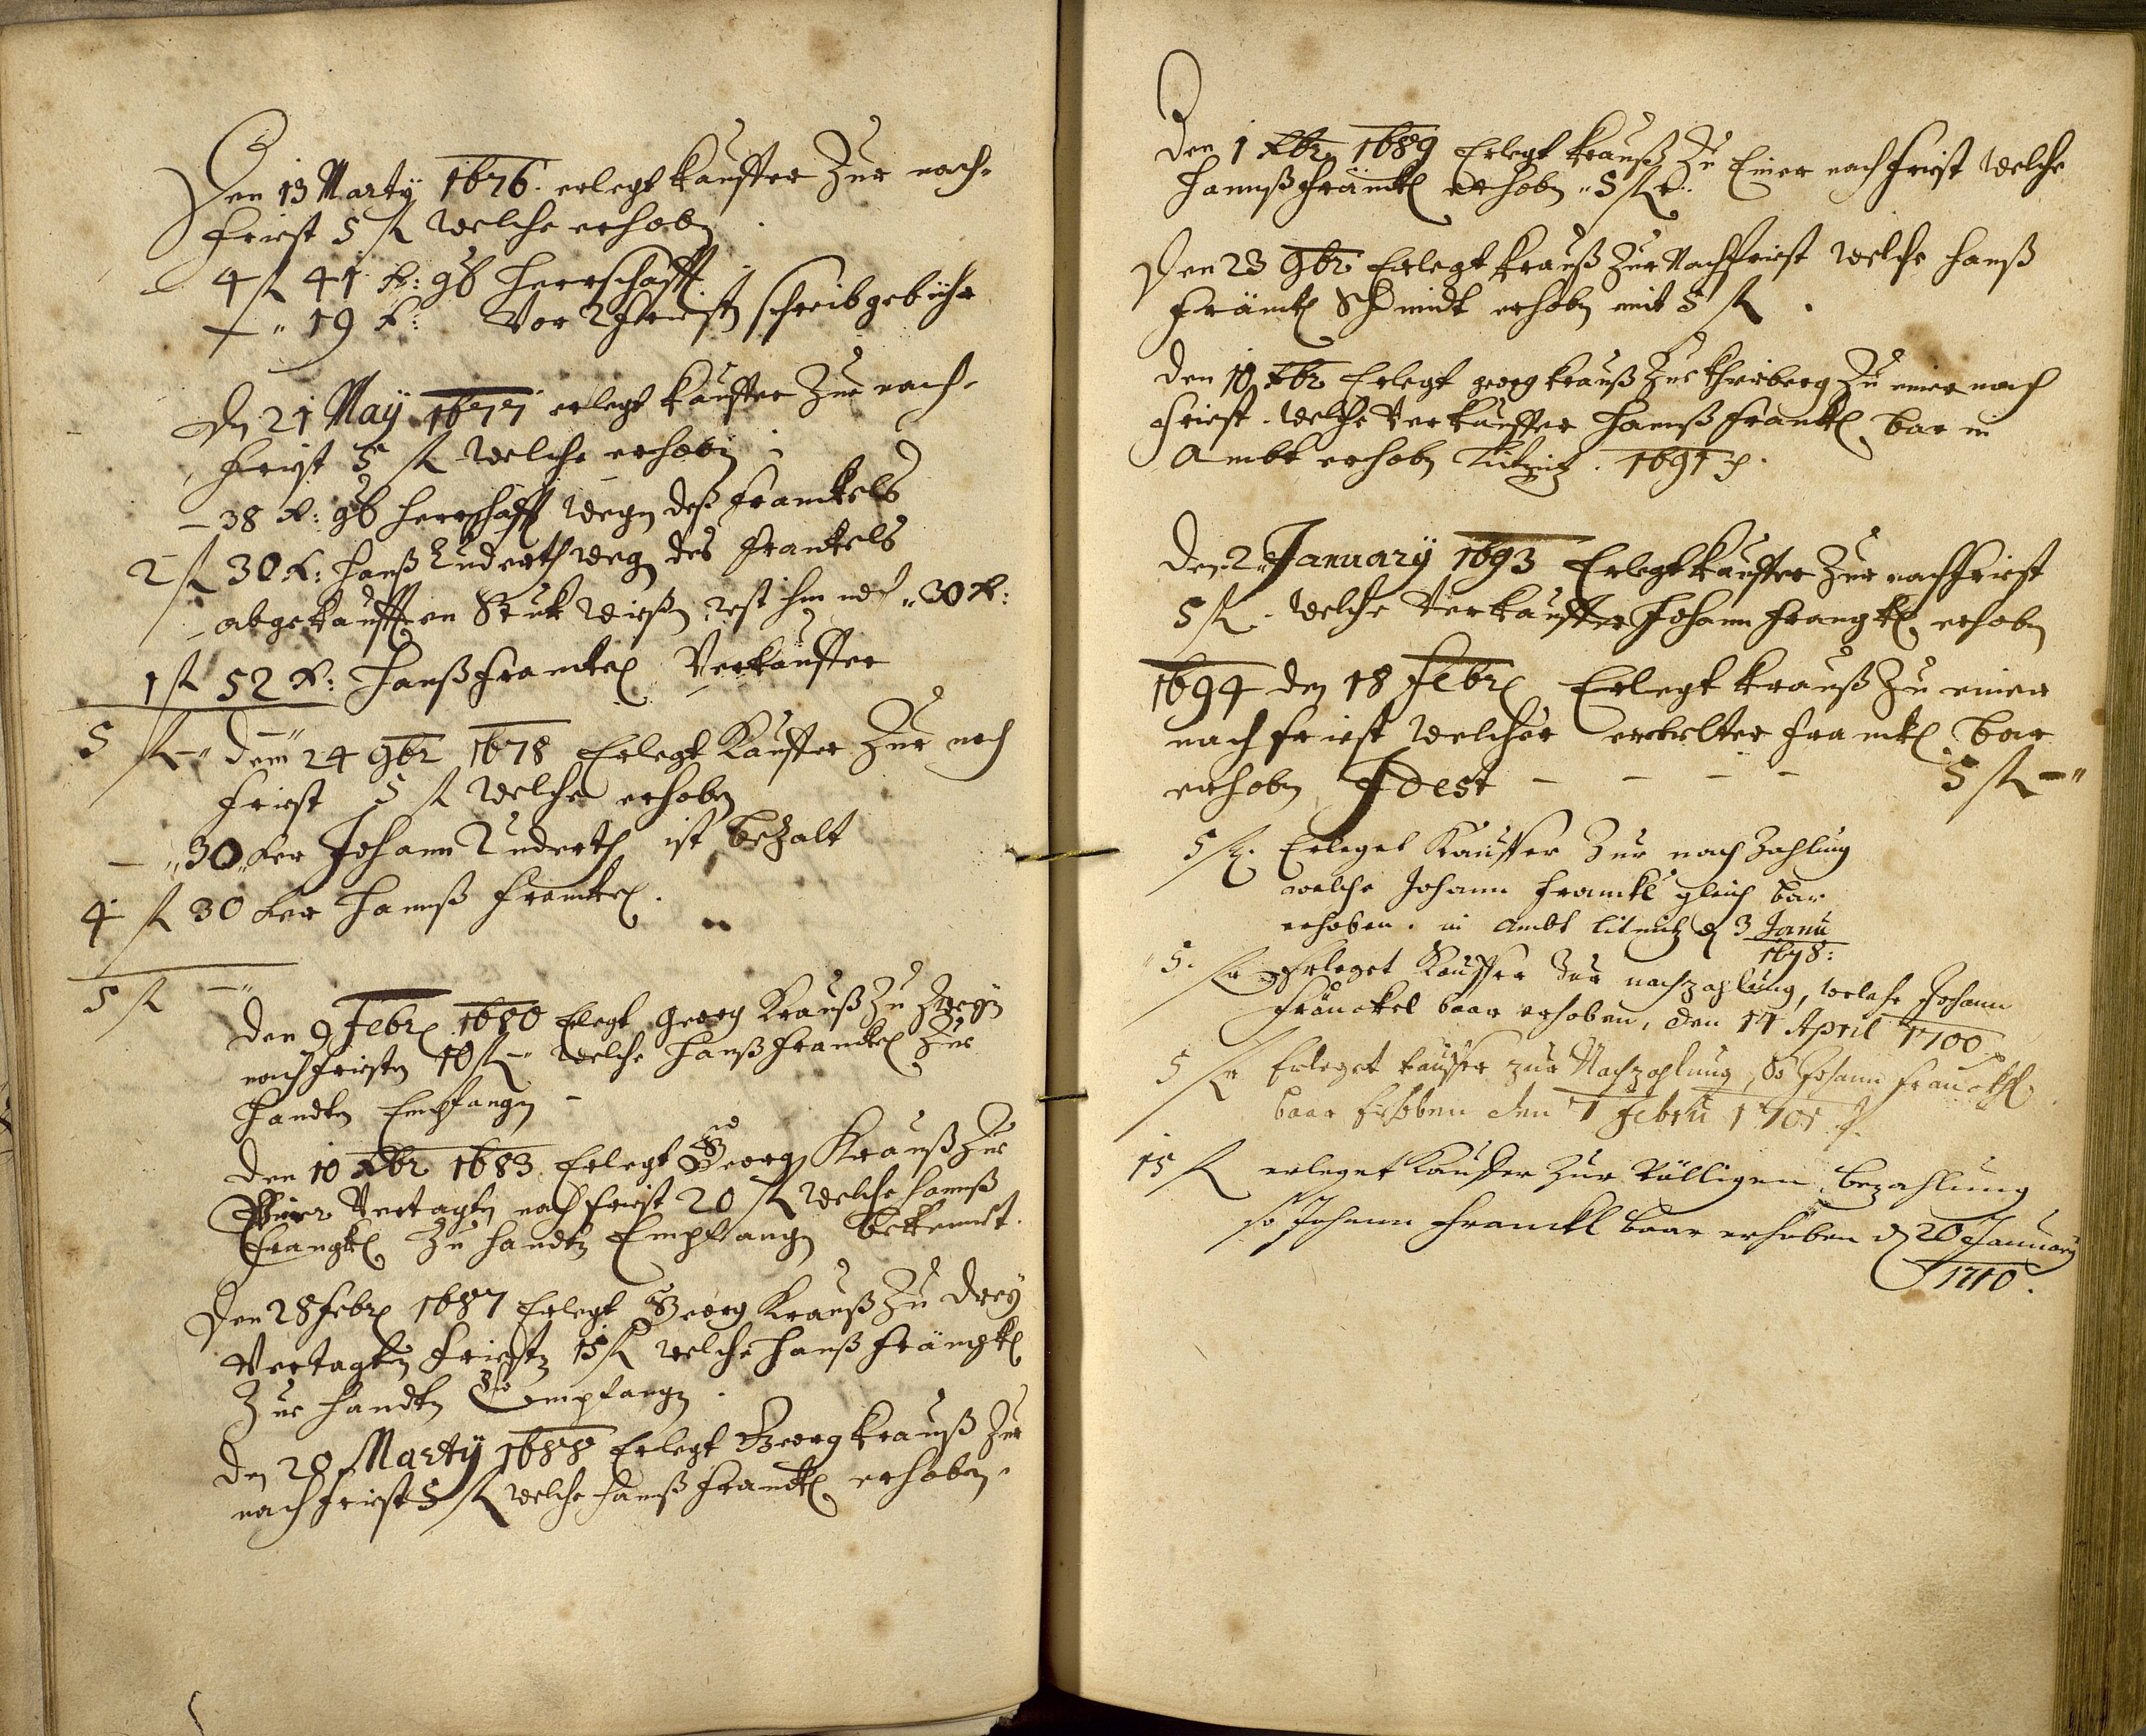 Den 13 Marty 1676. erlegt kauffer Zur nach-
friest 5 fl welche erhobn
4 fl 41 k: g̅b̅ herrschafft
— „ 19 k: Vor 2 friestn schreibgebühr
Dn 21 Maÿ 1677 erlegt kauffer Zur nach-
friest 5 fl welche erhobn :
— 38 k: g̅b̅ herrschafft wegn deß Franckels
2 fl 30 k: Hanß Luderth wegn des Frankels
abgekaufften Stuk wießn, rest ihm no̅ „ 30 k:
1 fl 52 k: Hanß Franckel Verkauffer
5 fl —„ Dem 24 9br 1678 Erlegt Kauffer Zur nach
friest 5 fl welche erhobn
— „ 30 „ ker Johann Luderth ist bezalt
4 fl 30 ker Hannß Franckel.
5 fl —„
Den 9 Febr 1680 Erlegt Georg Krauß Zu Zweyn
nachfriestn 10 fl —„ welche Hanß Franckel Zur
Handtn Empfangn —
Den 10 Xbr 1683 Erlegt Georg Krauß Zur
Vier Vertagtn nachfriest 20 fl welche Hannß
Frangkl Zu handtn Empfangn bekennt.
Den 28 Febr 1687 Erlegt Georg Krauß Zu Dreÿ
Vertagtn Friestn 15 fl welche Hanß Frängkl
Zur Handtn empfangn.
Dn 20 Marty 1688 Erlegt Georg Krauß Zur
nachfriest 5 fl welche Hannß Franckl erhobn.
Den 1 Xbr 1689 Erlegt Krauß Zu Einer nachfriest welche
Hannß Främckl erhobn „ 5 fl
Den 23 9br Erlegt Krauß Zur Nachfriest welche Hanß
Främkl Schmidt erhobn mit 5 fl.
Den 10 Xbr Erlegt georg Krauß Zu einer nach
friest. welche Verkauffer Hannß Franckl bar in
Ambt erhobn 1691
Den 2 January 1693 Erlegt kauffer Zur nachfriest
5 fl. welche Verkauffer Johann Frangkl erhobn
1694 den 18 Febr Erlegt Krauß Zu einer
nachfriest welcher Franckl bar
erhobn Idest — — — — 5 fl —„
5 fl. Erleget Kauffer Zur nach Zahlung
welche Johann Franckl gleich bar
erhoben. in Ambt litmitz d 3 Janu
1698:
5. fl Erleget Kauffer Zur nachzahlung, welche Johann
Fränckel baar erhoben, den 11 April 1700
5 fl Erleget kauffer zur Nachzahlung, So Johann Franckhl
baar Erhoben den 1 Febru 1701
15 fl erleget Kauffer Zur Völligen bezahlung
so Johann Franckl baar erhoben d 20 January
1710.